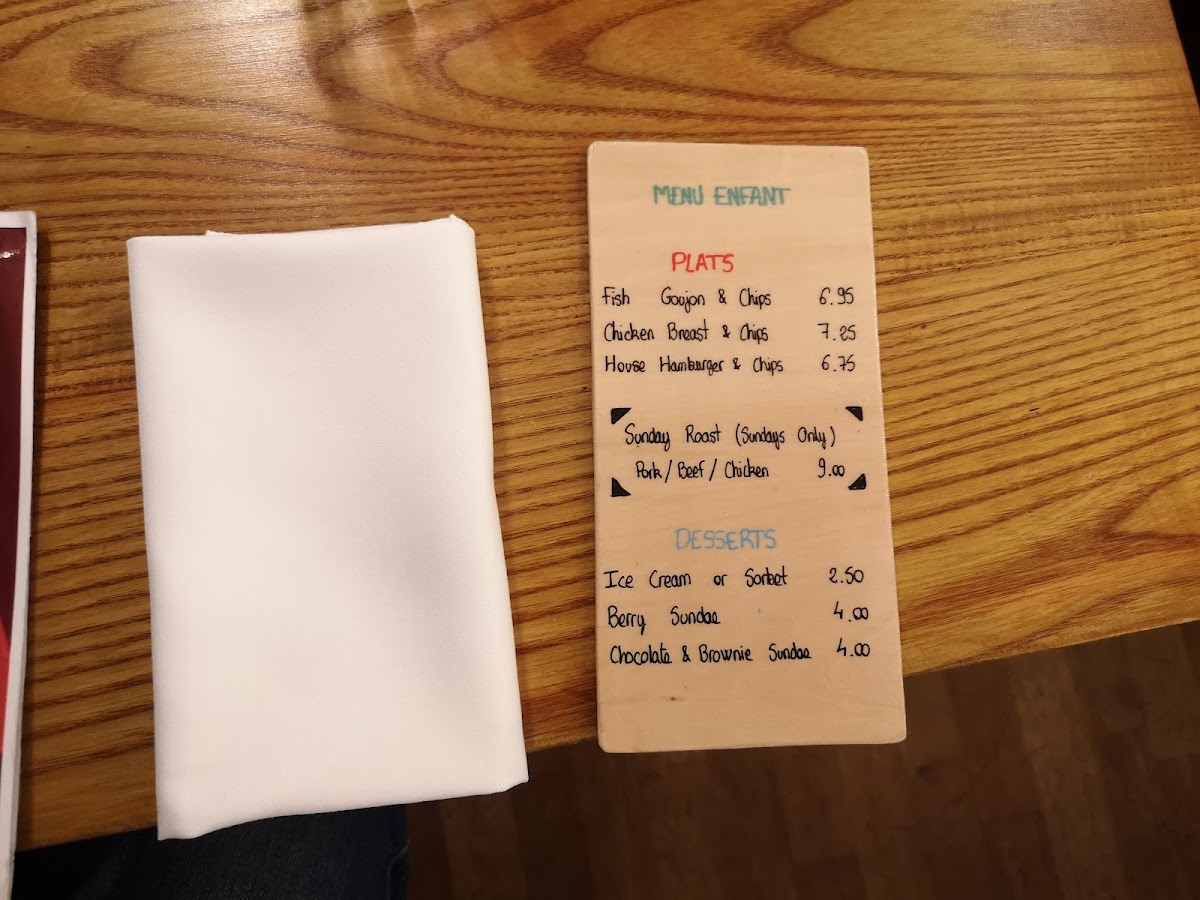 MENU ENFANT
PLATS
Fish Goujon & Chips 6.95
Chicken Breast & Chips 7.25
House Hamburger & Chips 6.75
Sunday Roast (Sundays Only)
Pork/Beef/Chicken 9.00
DESSERTS
Ice Cream or Sorbet 2.50
Berry Sundae 4.00
Chocolate & Brownie Sundae 4.00